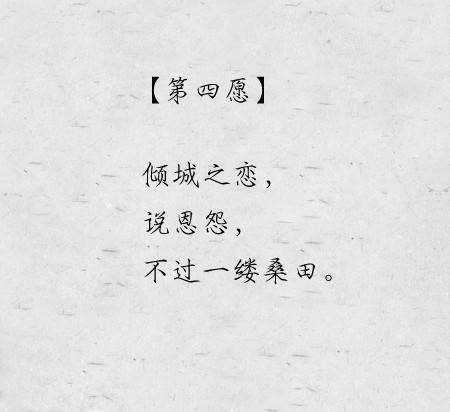 【第四愿】
倾城之恋，
说恩怨，
不过一缕桑田。